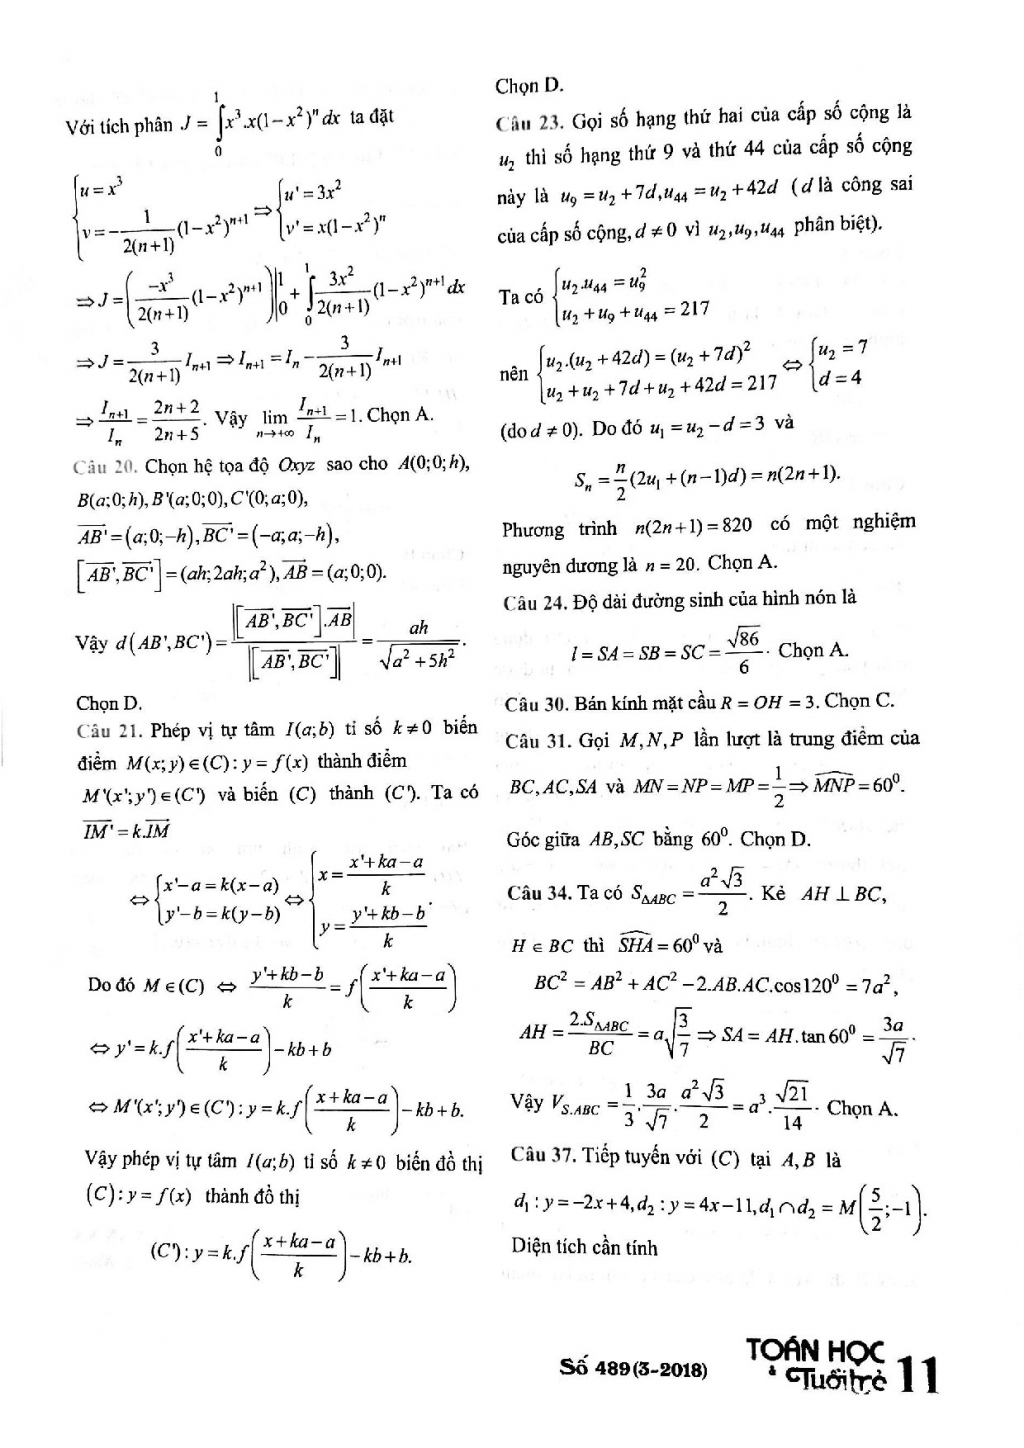 Với tích phân $J = \int_0^1 x^3.x(1-x^2)^n dx$ ta đặt
$\begin{cases} u = x^3 \\ v = -\frac{1}{2(n+1)}(1-x^2)^{n+1} \end{cases} \Rightarrow \begin{cases} u' = 3x^2 \\ v' = x(1-x^2)^n \end{cases}$
$\Rightarrow J = \left( \frac{-x^3}{2(n+1)}(1-x^2)^{n+1} \right) \Big|_0^1 + \int_0^1 \frac{3x^2}{2(n+1)}(1-x^2)^{n+1} dx$
$\Rightarrow J = \frac{3}{2(n+1)} I_{n+1} \Rightarrow I_{n+1} = I_n - \frac{3}{2(n+1)} I_{n+1}$
$\Rightarrow \frac{I_{n+1}}{I_n} = \frac{2n+2}{2n+5}$. Vậy $\lim_{n \to +\infty} \frac{I_{n+1}}{I_n} = 1$. Chọn A.
Câu 20. Chọn hệ tọa độ Oxyz sao cho A(0;0;h),
B(a;0;h), B'(a;0;0), C'(0;a;0),
$\overrightarrow{AB'} = (a;0;-h), \overrightarrow{BC'} = (-a;a;-h)$,
$\left[ \overrightarrow{AB'}, \overrightarrow{BC'} \right] = (ah;2ah;a^2), \overrightarrow{AB} = (a;0;0)$.
Vậy $d(AB',BC') = \frac{\left| \left[ \overrightarrow{AB'}, \overrightarrow{BC'} \right] . \overrightarrow{AB} \right|}{\left| \left[ \overrightarrow{AB'}, \overrightarrow{BC'} \right] \right|} = \frac{ah}{\sqrt{a^2+5h^2}}$.
Chọn D.
Câu 21. Phép vị tự tâm I(a;b) tỉ số k ≠ 0 biến
điểm M(x;y) ∈ (C): y = f(x) thành điểm
M'(x';y') ∈ (C') và biến (C) thành (C'). Ta có
$\overrightarrow{IM'} = k.\overrightarrow{IM}$
$\Leftrightarrow \begin{cases} x'-a = k(x-a) \\ y'-b = k(y-b) \end{cases} \Leftrightarrow \begin{cases} x = \frac{x'+ka-a}{k} \\ y = \frac{y'+kb-b}{k} \end{cases}$.
Do đó $M \in (C) \Leftrightarrow \frac{y'+kb-b}{k} = f\left( \frac{x'+ka-a}{k} \right)$
$\Leftrightarrow y' = k.f\left( \frac{x'+ka-a}{k} \right) - kb + b$
$\Leftrightarrow M'(x';y') \in (C'): y = k.f\left( \frac{x+ka-a}{k} \right) - kb + b$.
Vậy phép vị tự tâm I(a;b) tỉ số k ≠ 0 biến đồ thị
(C): y = f(x) thành đồ thị
$(C'): y = k.f\left( \frac{x+ka-a}{k} \right) - kb + b$.
Chọn D.
Câu 23. Gọi số hạng thứ hai của cấp số cộng là
$u_2$ thì số hạng thứ 9 và thứ 44 của cấp số cộng
này là $u_9 = u_2 + 7d, u_{44} = u_2 + 42d$ (d là công sai
của cấp số cộng, d ≠ 0 vì $u_2, u_9, u_{44}$ phân biệt).
Ta có $\begin{cases} u_2.u_{44} = u_9^2 \\ u_2 + u_9 + u_{44} = 217 \end{cases}$
nên $\begin{cases} u_2.(u_2+42d) = (u_2+7d)^2 \\ u_2 + u_2 + 7d + u_2 + 42d = 217 \end{cases} \Leftrightarrow \begin{cases} u_2 = 7 \\ d = 4 \end{cases}$
(do d ≠ 0). Do đó $u_1 = u_2 - d = 3$ và
$S_n = \frac{n}{2}(2u_1 + (n-1)d) = n(2n+1)$.
Phương trình n(2n+1) = 820 có một nghiệm
nguyên dương là n = 20. Chọn A.
Câu 24. Độ dài đường sinh của hình nón là
$l = SA = SB = SC = \frac{\sqrt{86}}{6}$. Chọn A.
Câu 30. Bán kính mặt cầu R = OH = 3. Chọn C.
Câu 31. Gọi M,N,P lần lượt là trung điểm của
BC, AC, SA và $MN = NP = MP = \frac{1}{2} \Rightarrow \widehat{MNP} = 60^0$.
Góc giữa AB, SC bằng $60^0$. Chọn D.
Câu 34. Ta có $S_{\Delta ABC} = \frac{a^2\sqrt{3}}{2}$. Kẻ AH ⊥ BC,
H ∈ BC thì $\widehat{SHA} = 60^0$ và
$BC^2 = AB^2 + AC^2 - 2.AB.AC.\cos 120^0 = 7a^2$,
$AH = \frac{2.S_{\Delta ABC}}{BC} = a\sqrt{\frac{3}{7}} \Rightarrow SA = AH.\tan 60^0 = \frac{3a}{\sqrt{7}}$.
Vậy $V_{S.ABC} = \frac{1}{3}.\frac{3a}{\sqrt{7}}.\frac{a^2\sqrt{3}}{2} = a^3.\frac{\sqrt{21}}{14}$. Chọn A.
Câu 37. Tiếp tuyến với (C) tại A, B là
$d_1: y = -2x+4, d_2: y = 4x-11, d_1 \cap d_2 = M\left( \frac{5}{2}; -1 \right)$.
Diện tích cần tính
Số 489 (3-2018)
TOÁN HỌC
& Tuổi trẻ
11